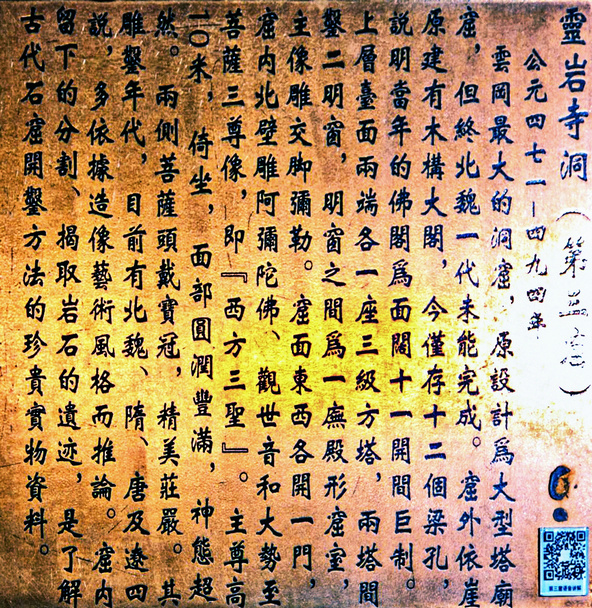 靈岩寺洞（第三窟）
公元四七一—四九四年
雲岡最大的洞窟，原設計爲大型塔廟
窟，但終北魏一代未能完成。窟外依崖
原建有木構大閣，今僅存十二個梁孔，
説明當年的佛閣爲面闊十一開間巨制。
上層臺面兩端各一座三級方塔，兩塔間
鑿二明窗，明窗之間爲一廡殿形窟室，
主像雕交脚彌勒。窟面東西各開一門，
窟内北壁雕阿彌陀佛、觀世音和大勢至
菩薩三尊像，即『西方三聖』。主尊高
10米，倚坐，面部圓潤豐滿，神態超
然。兩側菩薩頭戴寶冠，精美莊嚴。其
雕鑿年代，目前有北魏、隋、唐及遼四
説，多依據造像藝術風格而推論。窟内
留下的分割、揭取岩石的遺迹，是了解
古代石窟開鑿方法的珍貴實物資料。